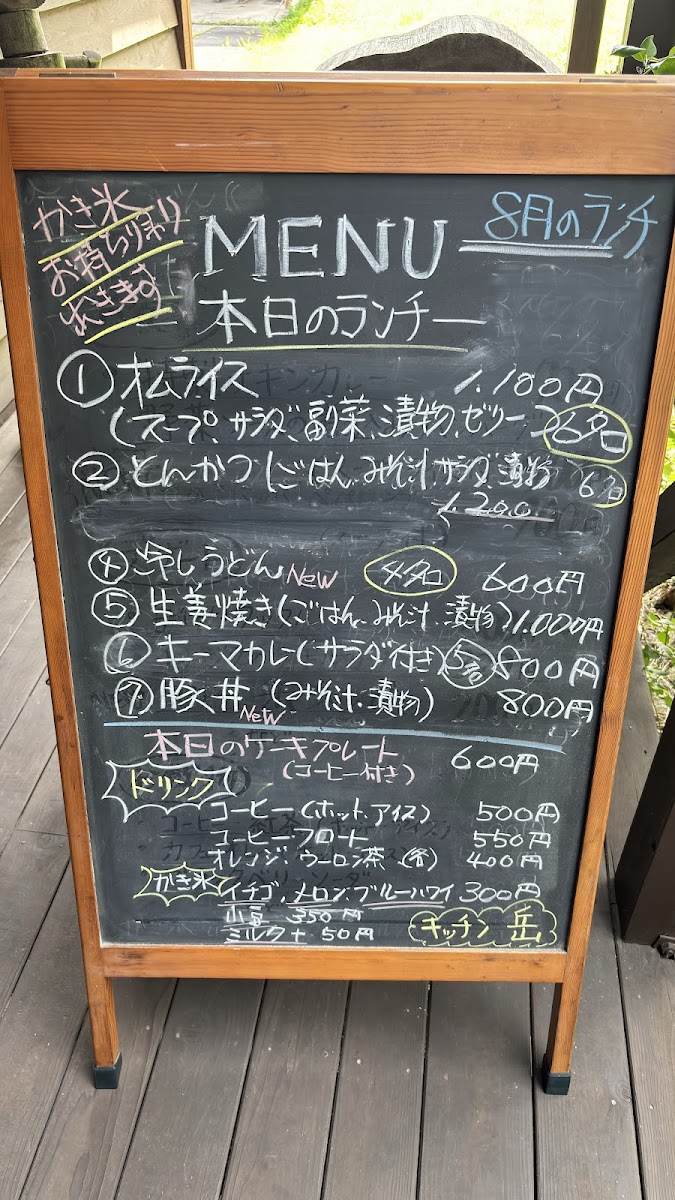 かき氷
お持ち帰り
できます
8月のランチ
MENU
本日のランチー
① オムライス 1.100円
(スープ、サラダ、副菜、漬物、ゼリー) 6名
② とんかつ(ごはん、みそ汁、サラダ、漬物 6名
1.200
④ 冷しうどん New 4名 600円
⑤ 生姜焼き(ごはん、みそ汁、漬物) 1.000円
⑥ キーマカレー(サラダ付き) 5名 800円
⑦ 豚丼 New (みそ汁、漬物) 800円
本日のケーキプレート 600円
(コーヒー付き)
ドリンク
コーヒー(ホット、アイス) 500円
コーヒーフロート 550円
オレンジ、ウーロン茶 (冷) 400円
かき氷 イチゴ、メロン、ブルーハワイ 300円
小豆 350円
ミルク+50円
キッチン 岳